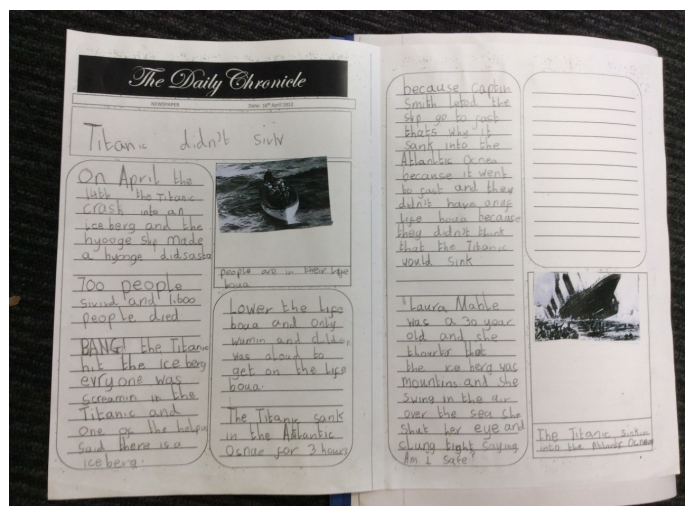 The Daily Chronicle
NEWSPAPER Date: 16th April 1912
Titanic didn't
On April the
14th the Titanic
crash into an
ice berg and the
hyooge ship made
a hyooge didsasta
700 people
and 1600
people died
BANG! the Titanic
hit the ice berg
evryone was
screamin in the
Titanic and
one of the
said there is a
ice berg.
people are in their life
boua
Lower the life
boua and only
wamin and
was aloud to
get on the life
boua.
The Titanic sank
in the Atlantic
for 3 hours
because Captin
Smith the
ship go to fast
thats why it
sank into the
Atlantic
because it went
to fast and they
didn't have
life boua because
they didn't think
that the Titanic
would sink
Laura Mable
was a 30 year
old and she
that
the ice berg was
mountins and she
swing in the air
over the sea she
shut her eye and
clung tight saying
Am I safe
The Titanic
into the